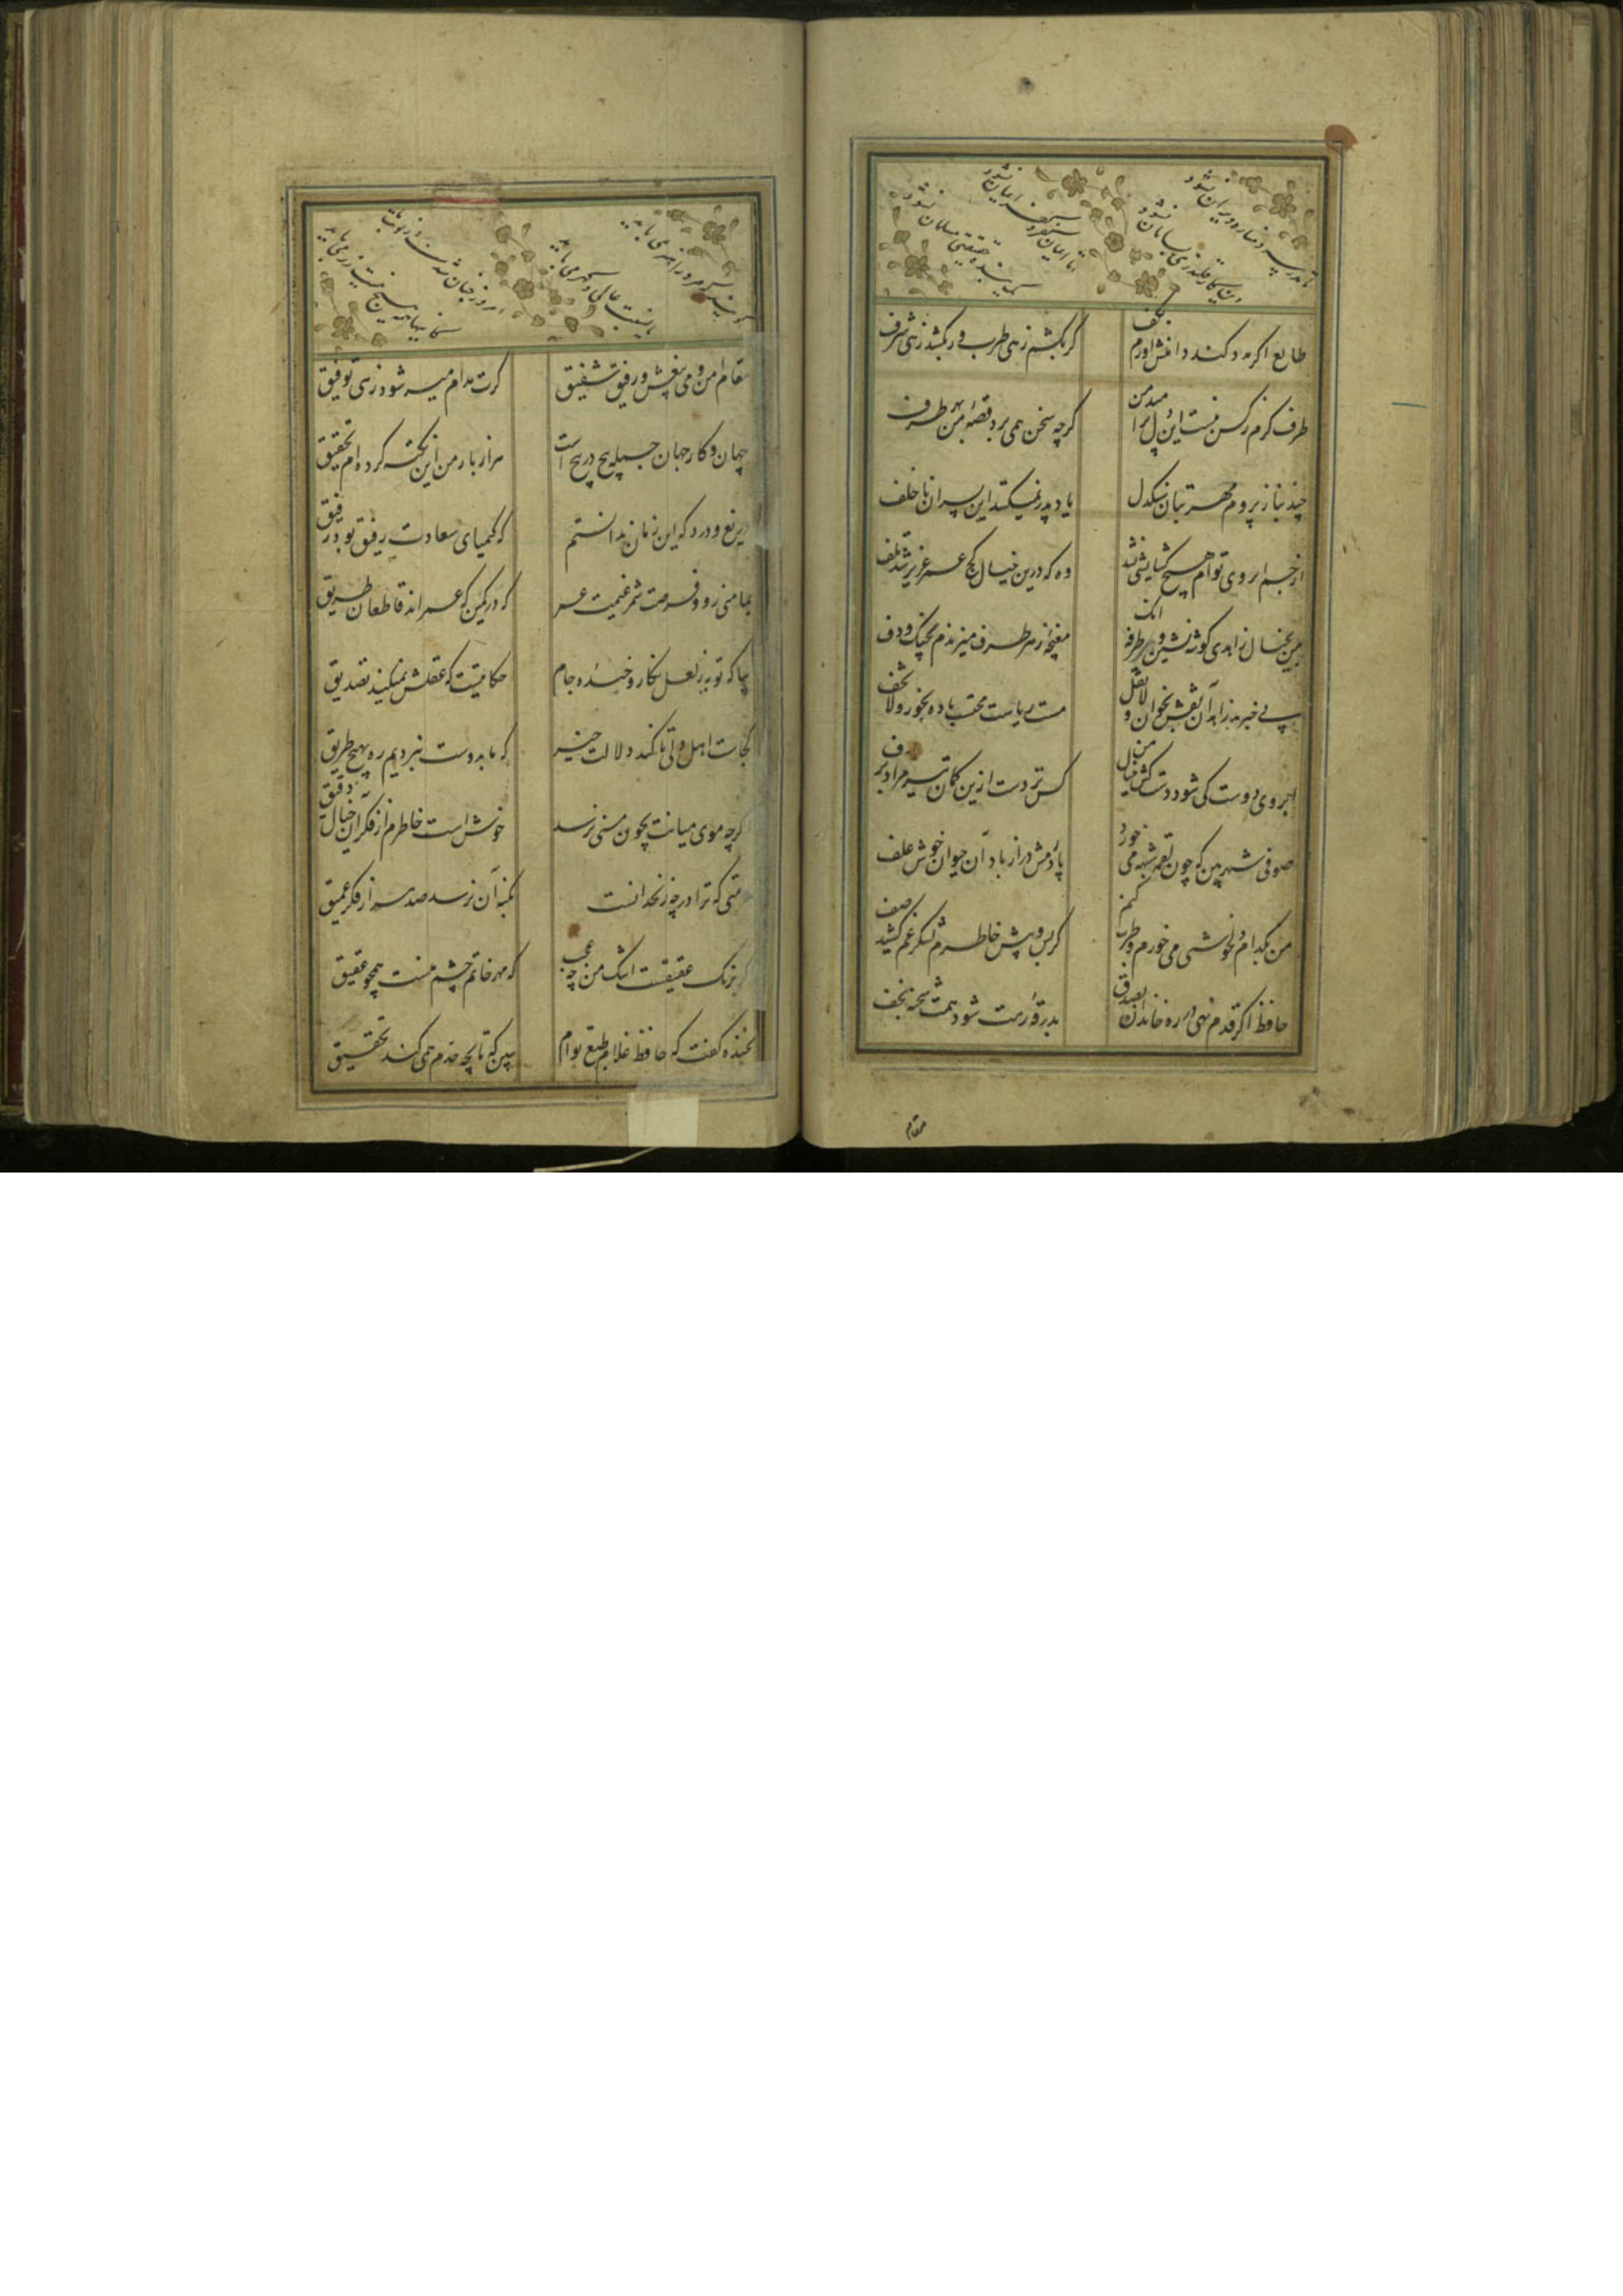 تا مدرسه و مناره ویران نشود
این کار قلندری بسامان نشود
تا ایمان کفر و کفر ایمان نشود
یک بنده حقیقتی مسلمان نشود
طالع اگر مدد کند دامنش آورم بکف
گر بکشم زهی طرب ور بکشد زهی شرف
طرف کرم ز کس نبست این دل پر امید من
گرچه سخن همی برد قصه من بهر طرف
چند بناز پرورم مهر بتان سنگدل
یاد پدر نمیکنند این پسران ناخلف
از خم ابروی توام هیچ گشایشی نشد
وه که درین خیال کج عمر عزیز شد تلف
من بخیال زاهدی گوشه نشین و طرفه آنک
مغبچه ز هر طرف میزندم بچنگ و دف
بی خبرند زاهدان نقش بخوان و لا تقل
مست ریاست محتسب باده بخور و لا تخف
ابروی دوست کی شود دستکش خیال من
کس نزدست ازین کمان تیر مراد بر هدف
صوفی شهر بین که چون لقمه شبهه می خورد
پاردمش دراز باد آن حیوان خوش علف
من بکدام دلخوشی می خورم و طرب کنم
کز پس و پیش خاطرم لشکر غم کشید صف
حافظ اگر قدم نهی در ره خاندان بصدق
بدرقه رهت شود همت شحنه نجف
مقام
می باید
عالمی می باید
امروز چنان شدست
مقام امن و می بیغش و رفیق شفیق
گرت مدام میسر شود زهی توفیق
جهان و کار جهان جمله هیچ در هیچ است
هزار بار من این نکته کرده ام تحقیق
دریغ و درد که این زمان ندانستم
که کیمیای سعادت رفیق بود رفیق
بمامنی رو و فرصت شمر غنیمت عمر
که در کمین که عمراند قاطعان طریق
بیا که توبه ز لعل نگار و خنده جام
حکایتیست که عقلش نمیکند تصدیق
کجاست اهل دلی تا کند دلالت خیر
که ما بدوست نبردیم ره بهیچ طریق
اگرچه موی میانت بچون منی نرسد
خوش است خاطرم از فکر آن خیال دقیق
که ترا در چه زنخدانست
بکنه آن نرسد صد هزار فکر عمیق
برنگ عقیقست اشک من چه عجب
که مهر خاتم چشم منست همچو عقیق
بخنده گفت که حافظ غلام طبع توام
ببین که تا بچه حدم همی کند تحقیق